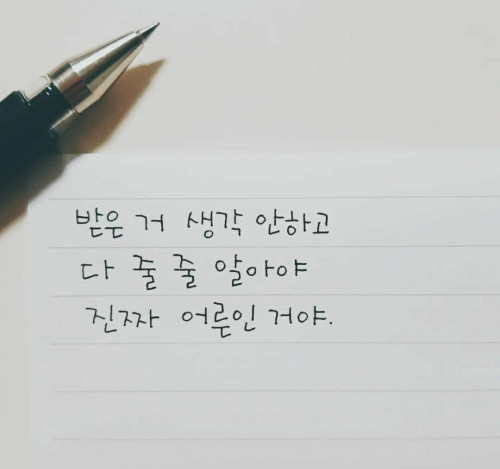 받은 거 생각 안하고
다 줄 줄 알아야
진짜 어른인 거야.